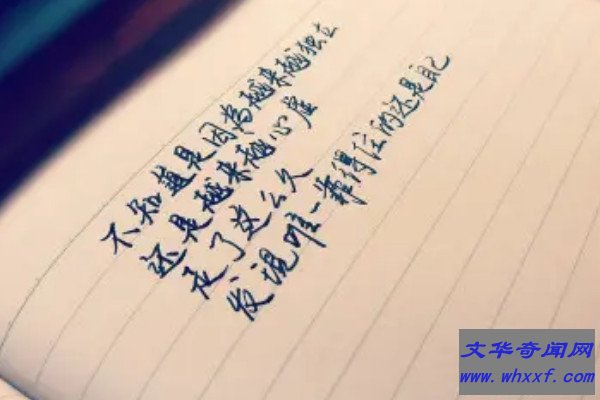 不知道是因为越来越独立
还是越来越心虚
走了这么久
发现唯一靠得住的还是自己
文华奇闻网
www.whxxf.com